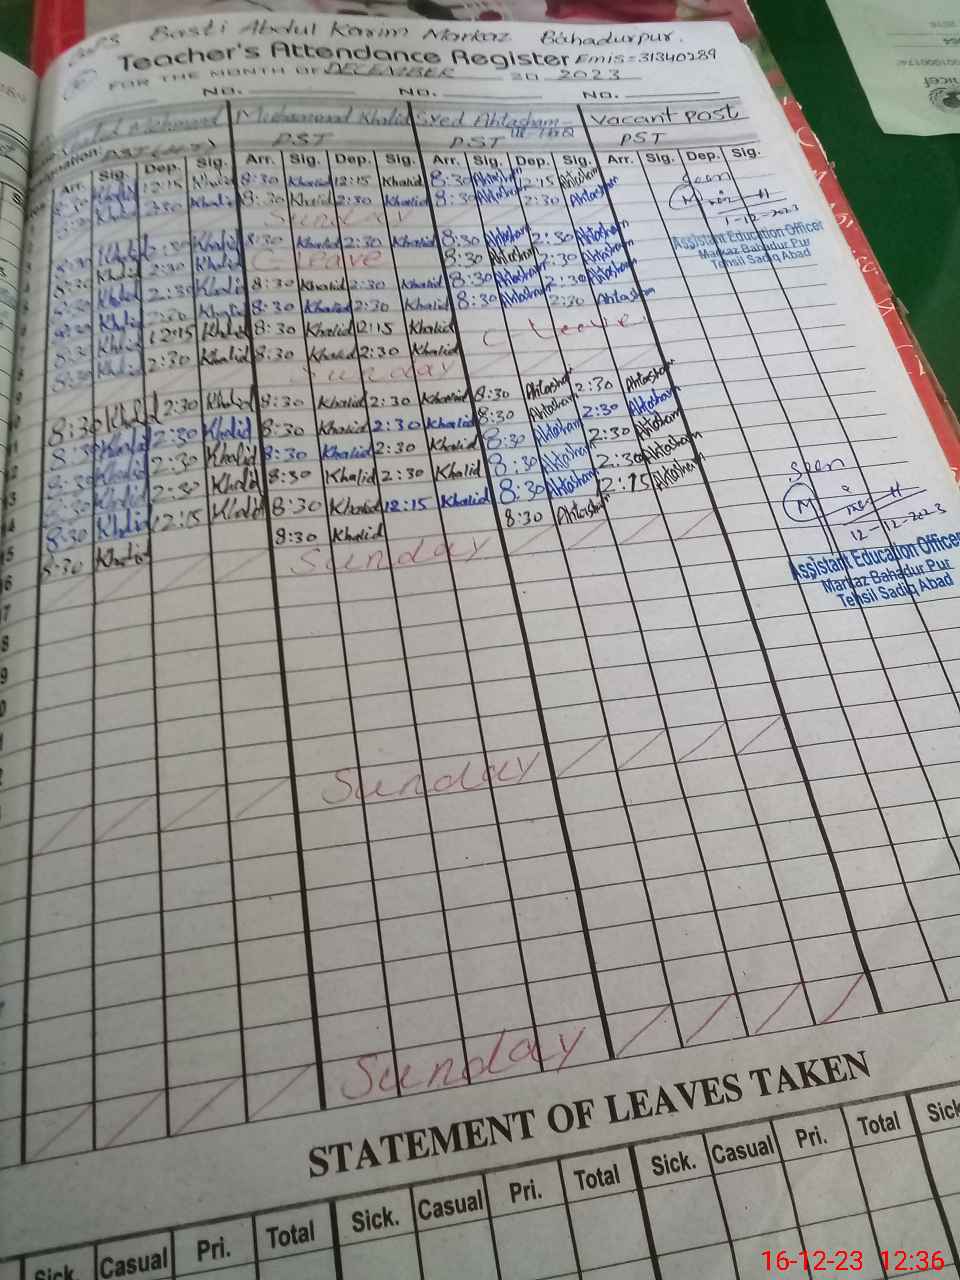 Basti Abdul Karim Markaz Bahadurpur.
Teacher's Attendance Register Emis=31340289
FOR THE MONTH OF DECEMBER 20 2023
NO. NO. NO.
Mehmand Muhammad Khalid Syed Ahtasham- Vacant post
PST PST PST
Arr. Sig. Dep. Sig. Arr. Sig. Dep. Sig. Arr. Sig. Dep. Sig. Arr. Sig. Dep. Sig.
8:30 Khalid 12:15 Khalid 8:30 Khalid 12:15 Khalid 8:30 Ahtasham 12:15 Ahtasham Seen
8:30 Khalid 2:30 Khalid 8:30 Khalid 2:30 Khalid 8:30 Ahtasham 2:30 Ahtasham
Sunday 1-12-2023
8:30 Khalid 2:30 Khalid 8:30 Khalid 2:30 Khalid 8:30 Ahtasham 2:30 Ahtasham Assistant Education Officer
8:30 Khalid 2:30 Khalid C-leave 8:30 Ahtasham 2:30 Ahtasham Markaz Bahadur Pur
8:30 Khalid 2:30 Khalid 8:30 Khalid 2:30 Khalid 8:30 Ahtasham 2:30 Ahtasham Tehsil Sadiq Abad
8:30 Khalid 2:30 Khalid 8:30 Khalid 2:30 Khalid 8:30 Ahtasham 2:30 Ahtasham
8:30 Khalid 12:15 Khalid 8:30 Khalid 12:15 Khalid C-leave
8:30 Khalid 2:30 Khalid 8:30 Khalid 2:30 Khalid
Sunday
8:30 Khalid 2:30 Khalid 8:30 Khalid 2:30 Khalid 8:30 Ahtasham 2:30 Ahtasham
8:30 Khalid 2:30 Khalid 8:30 Khalid 2:30 Khalid 8:30 Ahtasham 2:30 Ahtasham
8:30 Khalid 2:30 Khalid 8:30 Khalid 2:30 Khalid 8:30 Ahtasham 2:30 Ahtasham
8:30 Khalid 2:30 Khalid 8:30 Khalid 2:30 Khalid 8:30 Ahtasham 2:30 Ahtasham Seen
8:30 Khalid 12:15 Khalid 8:30 Khalid 12:15 Khalid 8:30 Ahtasham 12:15 Ahtasham
8:30 Khalid 8:30 Khalid 8:30 Ahtasham 12-12-2023
Sunday Assistant Education Officer
Markaz Bahadur Pur
Tehsil Sadiq Abad
Sunday
Sunday
STATEMENT OF LEAVES TAKEN
Sick. Casual Pri. Total Sick. Casual Pri. Total Sick. Casual Pri. Total Sick
16-12-23 12:36